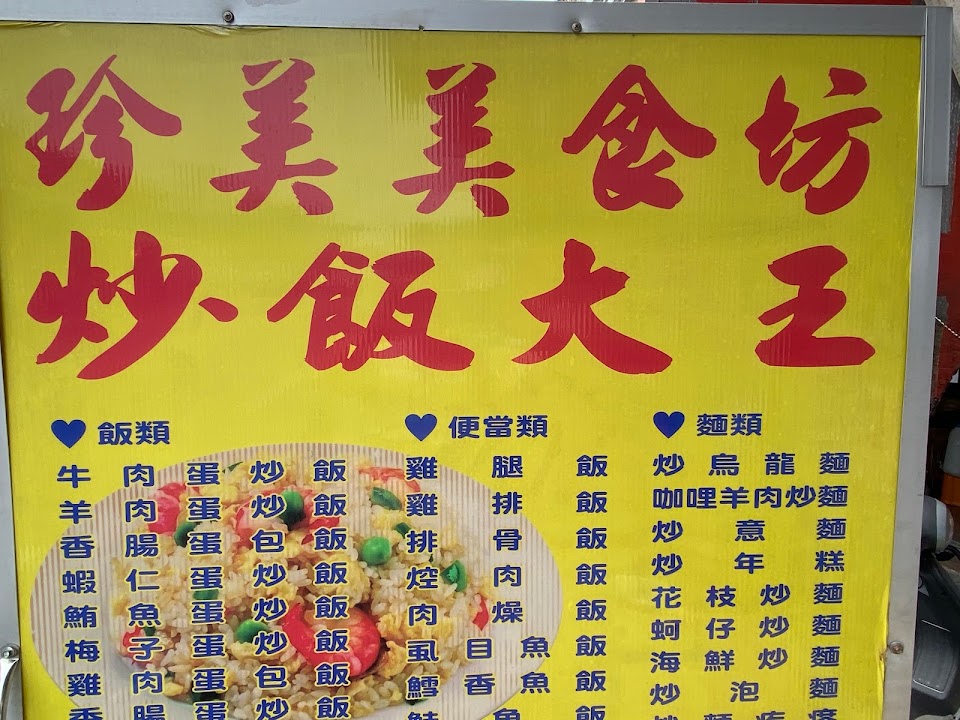 珍美美食坊
炒飯大王
♥ 飯類
牛肉蛋炒飯
羊肉蛋炒飯
香腸蛋包飯
蝦仁蛋炒飯
鮪魚蛋炒飯
梅子蛋炒飯
雞肉蛋包飯
香腸蛋炒飯
♥ 便當類
雞腿飯
雞排飯
排骨飯
焢肉飯
肉燥飯
虱目魚飯
鱈香魚飯
魚飯
♥ 麵類
炒烏龍麵
咖哩羊肉炒麵
炒意麵
炒年糕
花枝炒麵
蚵仔炒麵
海鮮炒麵
炒泡麵